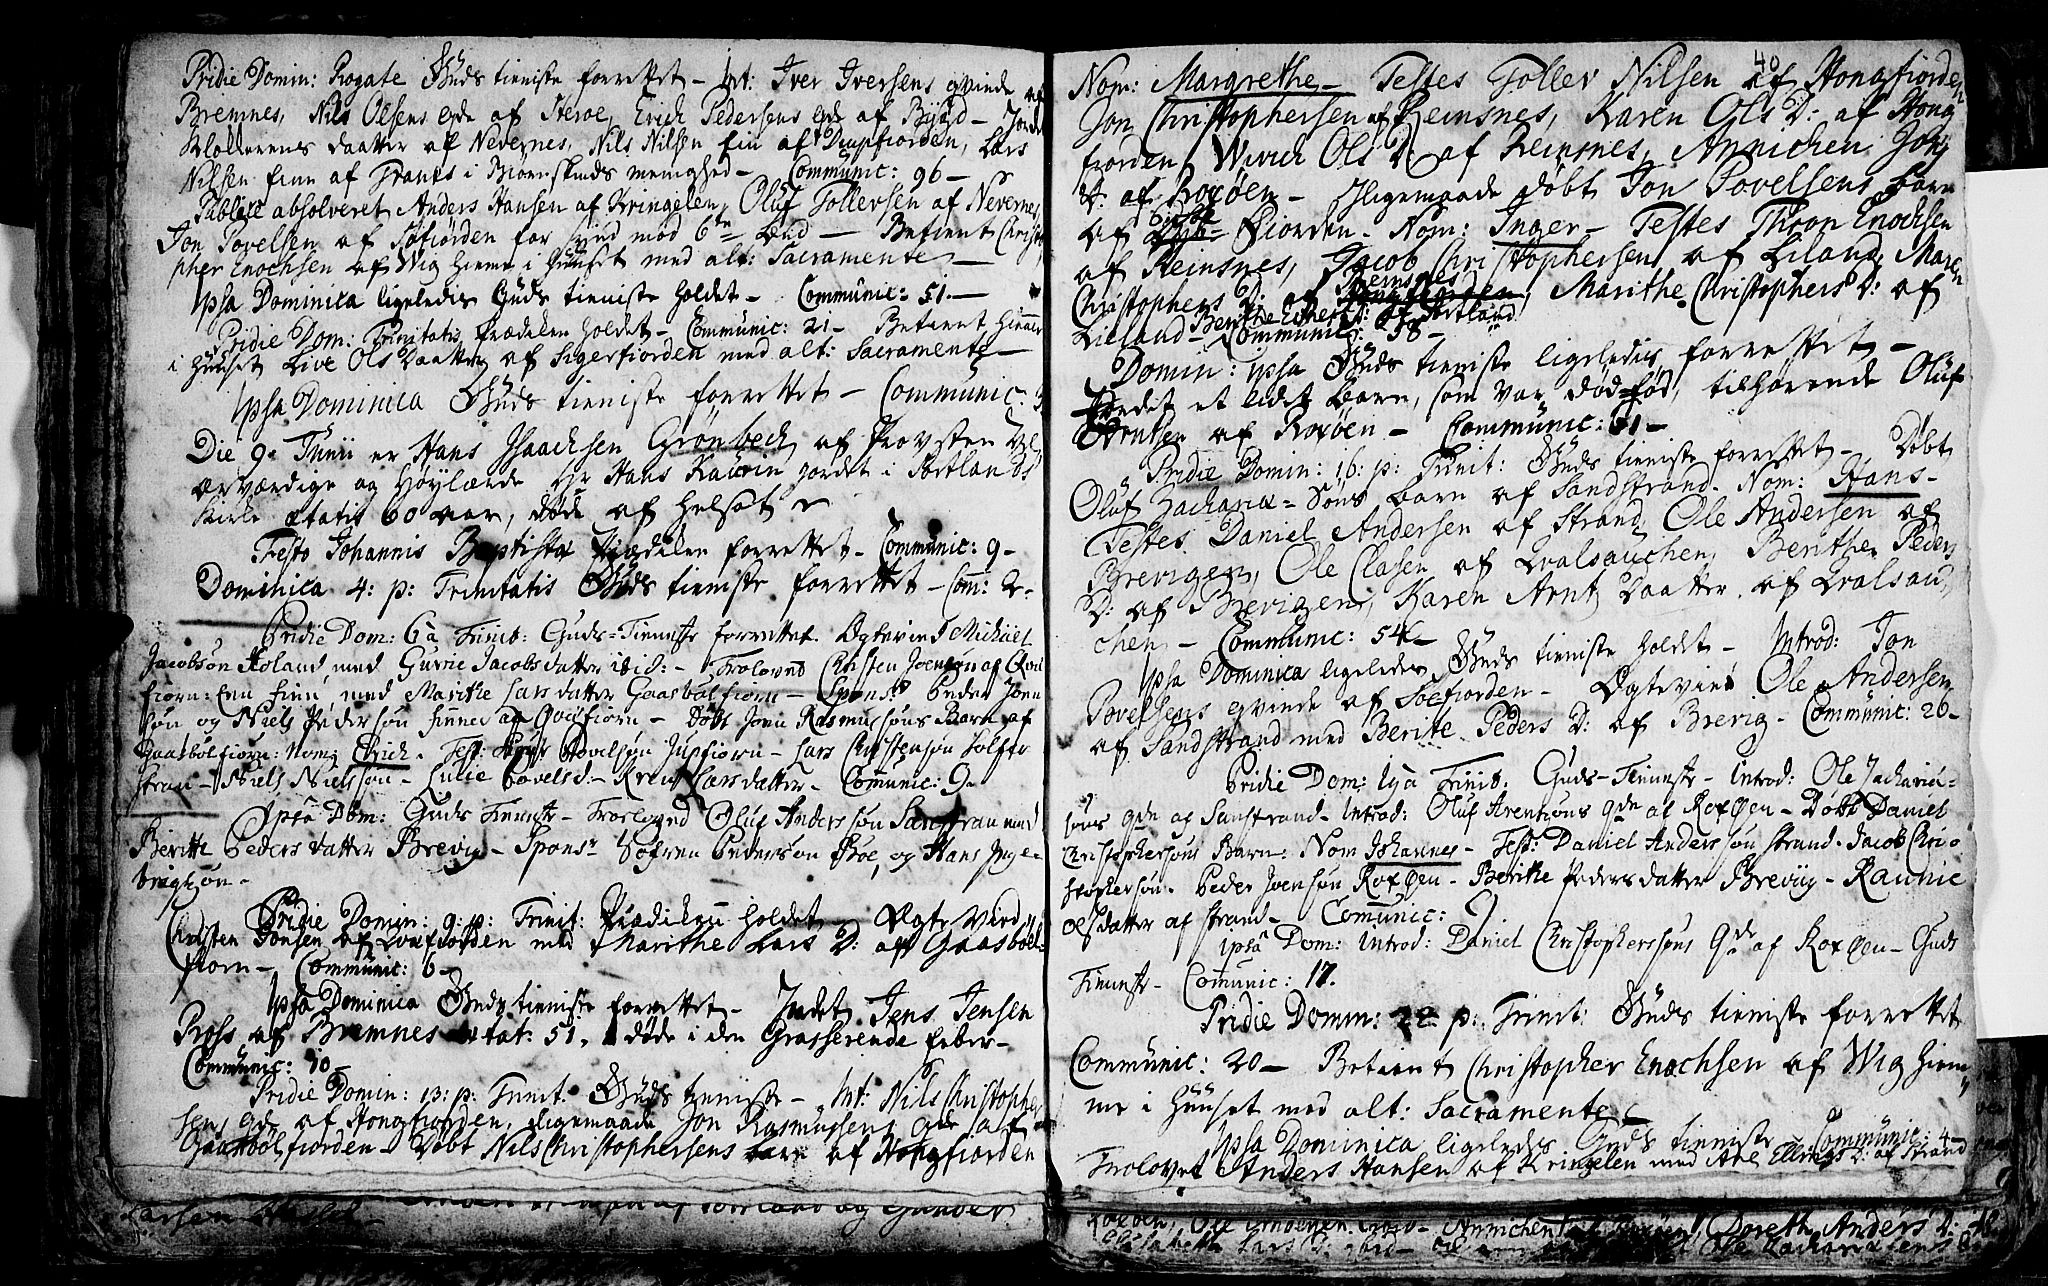 Pridie Domin: Rogate Guds tieniste forrettet – Int: Iver Iversens qvinde af
Bremnes, Nils Olsens qde af Steroe, Erich Pedersens qde af Bygd –
Klokkerens daatter af Nevernes, Nils Nilsen fin af Diupfiorden, Lars
Nilsen finn af Franes i Biørnskinds menighed – Communic: 96 –
Publice absolveret Anders Hansen af Kringelen, Oluf Tollersen af Nevernes,
Jon Povelsen af Søfiorden for synd mod 6te bud – Betient Christo
pher Enochsen af Wig hieme i Huuset med alt: Sacramente –
Ipsa Dominica ligeledis Guds tieniste holdet – Communic: 51 –
Pridie Dom: Trinitatis Prædiken holdet – Communic: 21 – Betient hieme
i Huuset Live Ols Daatter af Sigerfiorden med alt: Sacramente –
Ipsa Dominica Guds tieniste forrettet – Communic:
Die 9. Junii er Hans Isaachsen Grönbech af Provsten Vel
ærværdige og Høylærde Hr Hans Kaurin jordet i Sortlands
Kirke ætatis 60 aar, døde af Helsot
Festo Johannis Baptistæ Prædiken forrettet – Communic: 9 –
Dominica 4: p: Trinitatis Guds tieniste forrettet – Com: 2 –
Pridie Dom: 6ta Trinit: Guds-Tienneste forrettet. Ægteviet Michael
Jacobsøn Holand, med Gurrie Jacobsdatter ibid: – Trolovet Christen Joensøn af Qval
fiorn: een finn, med Marithe Larsdatter Gaasbølfiorn – Spons: Peder Joen
søn og Niels Pedersøn finner af Qvalfiorn – Døbt Joen Rasmussøns Barn af
Gaasbølfiorn: Nom: Erich. Test: Povelsøn Jupfiorn – Lars Christensøn
stran – Niels Nielssøn – Povelsd: – Larsdatter – Communic: 9 –
Ipsâ Dom: Guds Tieneste – Troeloved Oluf Anderssøn Sanstran med
Beritte Pedersdatter Brevig – Spons: Søfren Pedersøn Boe, og Hans Inge-
brigtsøn –
Pridie Domin: 9: p: Trinit: Prædiken holdet – Ægte Vied
Christen Jonsen af Qvalfiorden med Marithe Lars D: af Gaasbøl-
fiorn – Communic: 6 –
Ipsa Dominica Guds tieniste forrettet – Jordet Jens Jensen
Ross af Bremnes ætat: 51. døde i den Grasserende feber –
Communic: 10 –
Pridie Domin: 13: p: Trinit: Guds tieniste – Int: Nils Christopher
sens qde af Hongfiorden, ligemaade Jon Rasmussens qde af
Gaasbølfiorden – Døbt Nils Christophersens barn af Hongfiorden
40
Nom: Margrethe – Testes Toller Nilsen af Hongfiorden
Jon Christophersen af Reinsnes, Karen Ols D: af Hong
fjorden, Wivich Ols D: af Reinsnes, Annichen Johs
D: af Roxøen – Iligemaade døbt Jon Povelsens barn
af Fiorden – Nom: Inger – Testes Thron Enochsen
af Reinsnes, Jacob Christophersen af Liland, Maren
Christophers D: af Reinsnes, Marithe Christophers D: af
Lieland – Berithe Eilerts D: af Sortland
Communic: 38 –
Domin: ipsa Guds tieniste ligeledis forrettet –
Jordet et lidet barn, som var død-fød, tilhørende Oluf
Arntsen af Roxøen – Communic: 61 –
Pridie Domin: 16: p: Trinit: Guds tieniste forrettet – Døbt
Oluf Zachariæ-Søns barn af Sandstrand. Nom: Hans –
Testes Daniel Andersen af Strand, Ole Andersen af
Brevigen, Ole Clasen af Qvalsauchen, Berithe Peders
D: af Brevigen, Karen Arnts Daatter af Qvalsau,
chen – Communic: 54 –
Ipsa Dominica ligeledes Guds tieniste holdet – Introd: Jon
Povelsens qvinde af Søefiorden – Ægteviet Ole Andersen
af Sandstrand med Berite Peders D: af Brevig – Communic: 26 –
Pridie Dom: 19â Trinit: Guds-Tienneste – Introd: Ole Zachariæ-
søns qde af Sanstrand – Introd: Oluf Arentsøns qde af Roxøen – Døbt Daniel
Christophersøns Barn: Nom Johannes – Test: Daniel Anderssøn Strand – Jacob Chri-
stophersøn. Peder Joensøn Roxøen – Berithe Pedersdatter Brevig – Raunie
Olsdatter af Strand – Comunic: 9
Ipsâ Dom: introd: Daniel Christopherssøns qde af Roxøen – Guds
Tienneste – Comunic: 17.
Pridie Domin: 22 p: Trinit: Guds tieniste forrettet
Communic: 20 – Betient Christopher Enochsen af Wig hiem
me i Huuset med alt: Sacramente –
Ipsa Dominica ligeledes Guds tieniste Communic: 4 –
Trolovet Anders Hansen af Kringelen med Ane Ellings D: af Strand